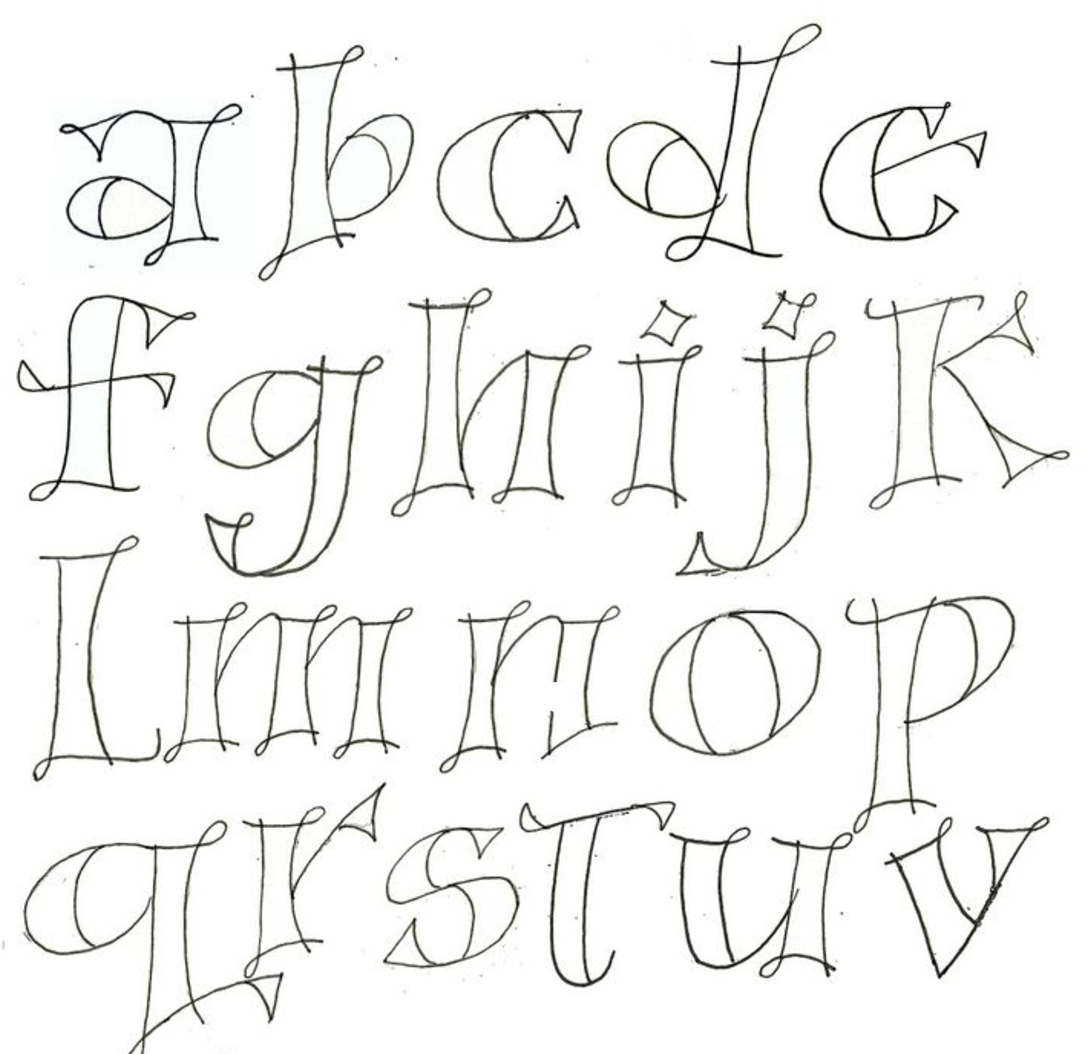 a b c d e
f g h i j k
l m n o p
q r s t u v